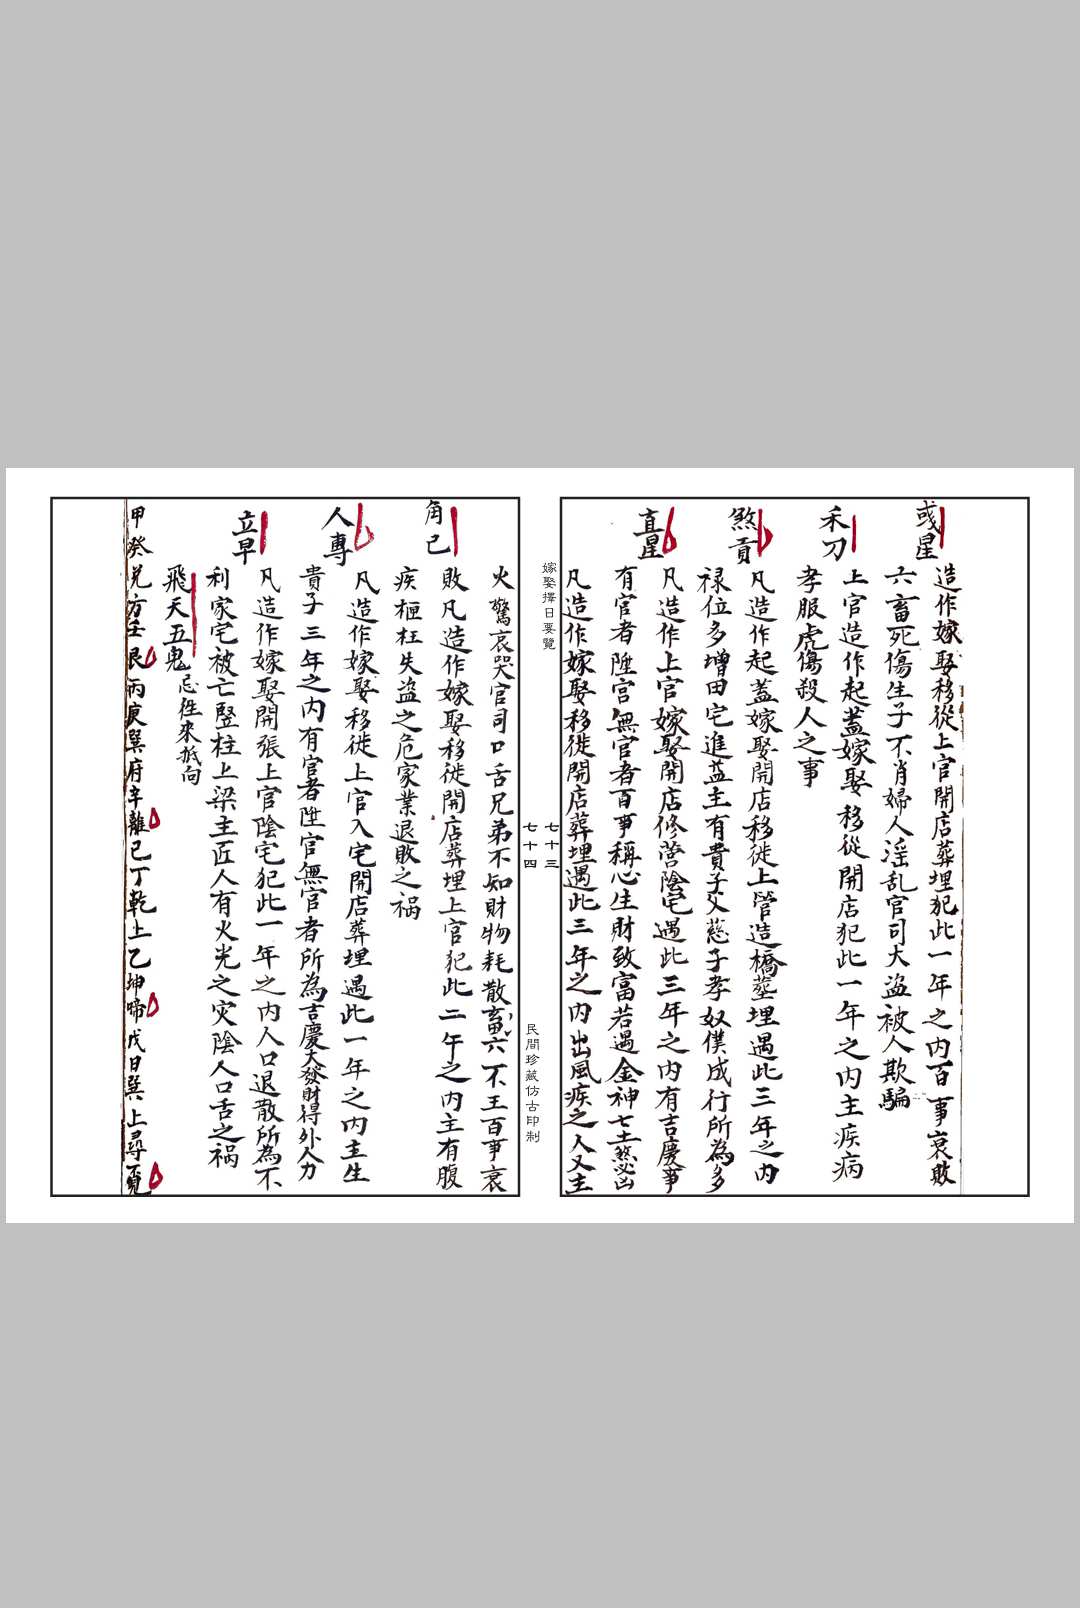 或星
造作嫁娶移從上官開店葬埋犯此一年之内百事衰敗
六畜死傷生子不肖婦人淫乱官司大盜被人欺騙
禾刀
上官造作起蓋嫁娶移從開店犯此一年之内主疾病
孝服虎傷殺人之事
煞貢
凡造作起蓋嫁娶開店移徙上管造橋塟埋遇此三年之内
禄位多增田宅進益主有貴子父慈子孝奴僕成行所為多
直星
凡造作上官嫁娶開店修营陰宅遇此三年之内有吉慶事
有官者陞官無官者百事稱心生財致富若遇金神七煞必凶
凡造作嫁娶移徙開店葬埋遇此三年之内出風疾之人又主
嫁娶擇日要覽
七十三
七十四
民間珍藏仿古印制
火驚哀哭官司口舌兄弟不知財物耗散畜六不王百事衰
角己
敗凡造作嫁娶移徙開店葬埋上官犯此二年之内主有腹
疾枢枉失盗之危家業退敗之祸
人專
凡造作嫁娶移徙上官入宅開店葬埋遇此一年之内主生
貴子三年之内有官者陞官無官者所為吉慶大發財得外人力
立早
凡造作嫁娶開張上官陰宅犯此一年之内人口退散所為不
利家宅被亡竪柱上梁主匠人有火光之灾陰人口舌之祸
飛天五鬼忌徃來抵向
甲癸兑方壬艮丙庚巽府辛離己丁乾上乙坤啼戊日巽上尋覓